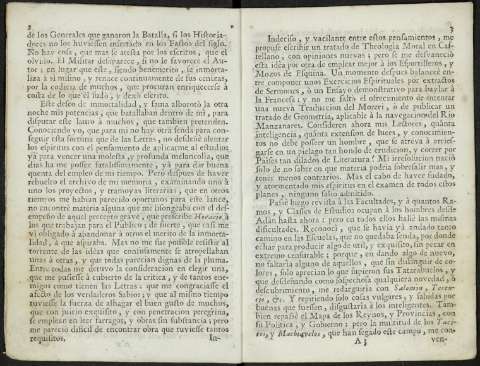 2
de los Generales que ganaron la Batalla, si los Historia-
dores no los huviessen insertado en los Fastos del siglo.
No hay cosa, que mas se acerca por los escritos, que el
olvido. El Militar desaparece, si no le favorece el Au-
tor; en lugar que este, siendo benemerito, se inmorta-
liza à sì mismo, y renace continuamente de sus cenizas,
por la codicia de muchos, que procuran enriquecerse à
costa de lo que èl sudò, y dexò escrito.
Este deseo de inmortalidad, y fama alborotò la otra
noche mis potencias; que batallaban dentro de mì, para
disputar este lauro à muchos, que tambien pretenden.
Conociendo yo, que para mì no hay otra senda para con-
seguir esta fortuna que de las Letras, no desdeñè alentar
los espiritus con el pensamiento de aplicarme al estudio;
yà para vencer una molesta, y profunda melancolìa, que
dias ha me posee fatalissimamente, y yà para dar buena
quenta del empleo de mi tiempo. Pero despues de haver
rebuelto el archivo de mi memoria, examinando uno à
uno los proyectos, y tramoyas literarias; que en otros
tiempos me havian parecido oportunos para este lance,
no encontrè materia alguna que me lisongeaba con el des-
empeño de aquel precepto grave, que prescribe Horacio à
los que trabajan para el Publico; de suerte, que casi me
vì obligado à abandonar à otro el merito de la inmorta-
lidad, à que aspiraba. Mas no me fue posible resistir al
torrente de las ideas que continuamente se atropellaban
unas à otras, y que todas parecian dignas de la pluma.
Entre todas me detuvo la consideracion en elegir una,
que me pusiesse à cubierto de la critica, y de tantos ene-
migos como tienen las Letras: que me congraciasse el
afecto de los verdaderos Sabios; y que al mismo tiempo
tuviesse la fuerza de alhagar el buen gusto de muchos,
que con juicio exquisito, y con penetracion peregrina,
se emplean en leer farragos, y obras sin substancia; pero
me pareciò dificil de encontrar obra que tuviesse tantos
requisitos.
In-
3
Indeciso, y vacilante entre estos pensamientos, me
propuse escribir un tratado de Theologìa Moral en Cas-
tellano, con opiniones nuevas; pero se me desvaneciò
esta idèa por otra de emplear mejor à los Espartilleros, y
Mozos de Esquina. Un momento despues balanceè en-
tre componer unos Exercicios Espirituales por extractos
de Sermones, ò un Ensayo demonstrativo para baylar à
la Francesa; y no me saltò el ofrecimiento de intentar
una nueva Traduccion del Moreri, ò de publicar un
tratado de Geometrìa, aplicable à la navegacion del Rio
Manzanares. Consideren ahora mis Lectores, quánta
inteligencia, quánta extension de luces, y conocimien-
tos no debe posseer un hombre, que se atreva à arries-
garse en un pielago tan hondo de erudicion, y correr por
Países tan dilatados de Literatura! Mi irresolucion naciò
solo de no saber en que materia podria sobresalir mas, y
tener menos contrarios. Mas el cabo de haver sudado,
y atormentado mis espiritus en el examen de todos estos
planes, ninguno saliò admitido.
Passè luego revista à las Facultades, y à quantos Ra-
mos, y Classes de Estudios ocupan à los hombres desde
Adàn hasta ahora; pero en todos ellos hallè las mismas
dificultades. Reconocì, que se havia yà andado tanto
camino en las Escuelas, que no quedaba senda, por donde
echar para producir algo de util, y exquisito, sin pecar en
extremo censurable; porque, en dando algo de nuevo,
no faltaria alguno de aquellos, que sin distinguir de co-
lores, solo aprecian lo que supieron sus Tatarabuelos, y
que desdeñando como sospechosa qualquiera novedad, ò
descubrimiento, me redargüiria con Salomon, Teren-
cio, &c. Y repitiendo solo cosas vulgares, y sabidas por
buenas que fuessen, disgustaria à los inteligentes. Tam-
bien repassè el Mapa de los Reynos, y Provincias, con
su Politica, y Gobierno; pero la multitud de los Taci-
tos, y Machiavelos, que han segado este campo, me con-
A 3
ven-